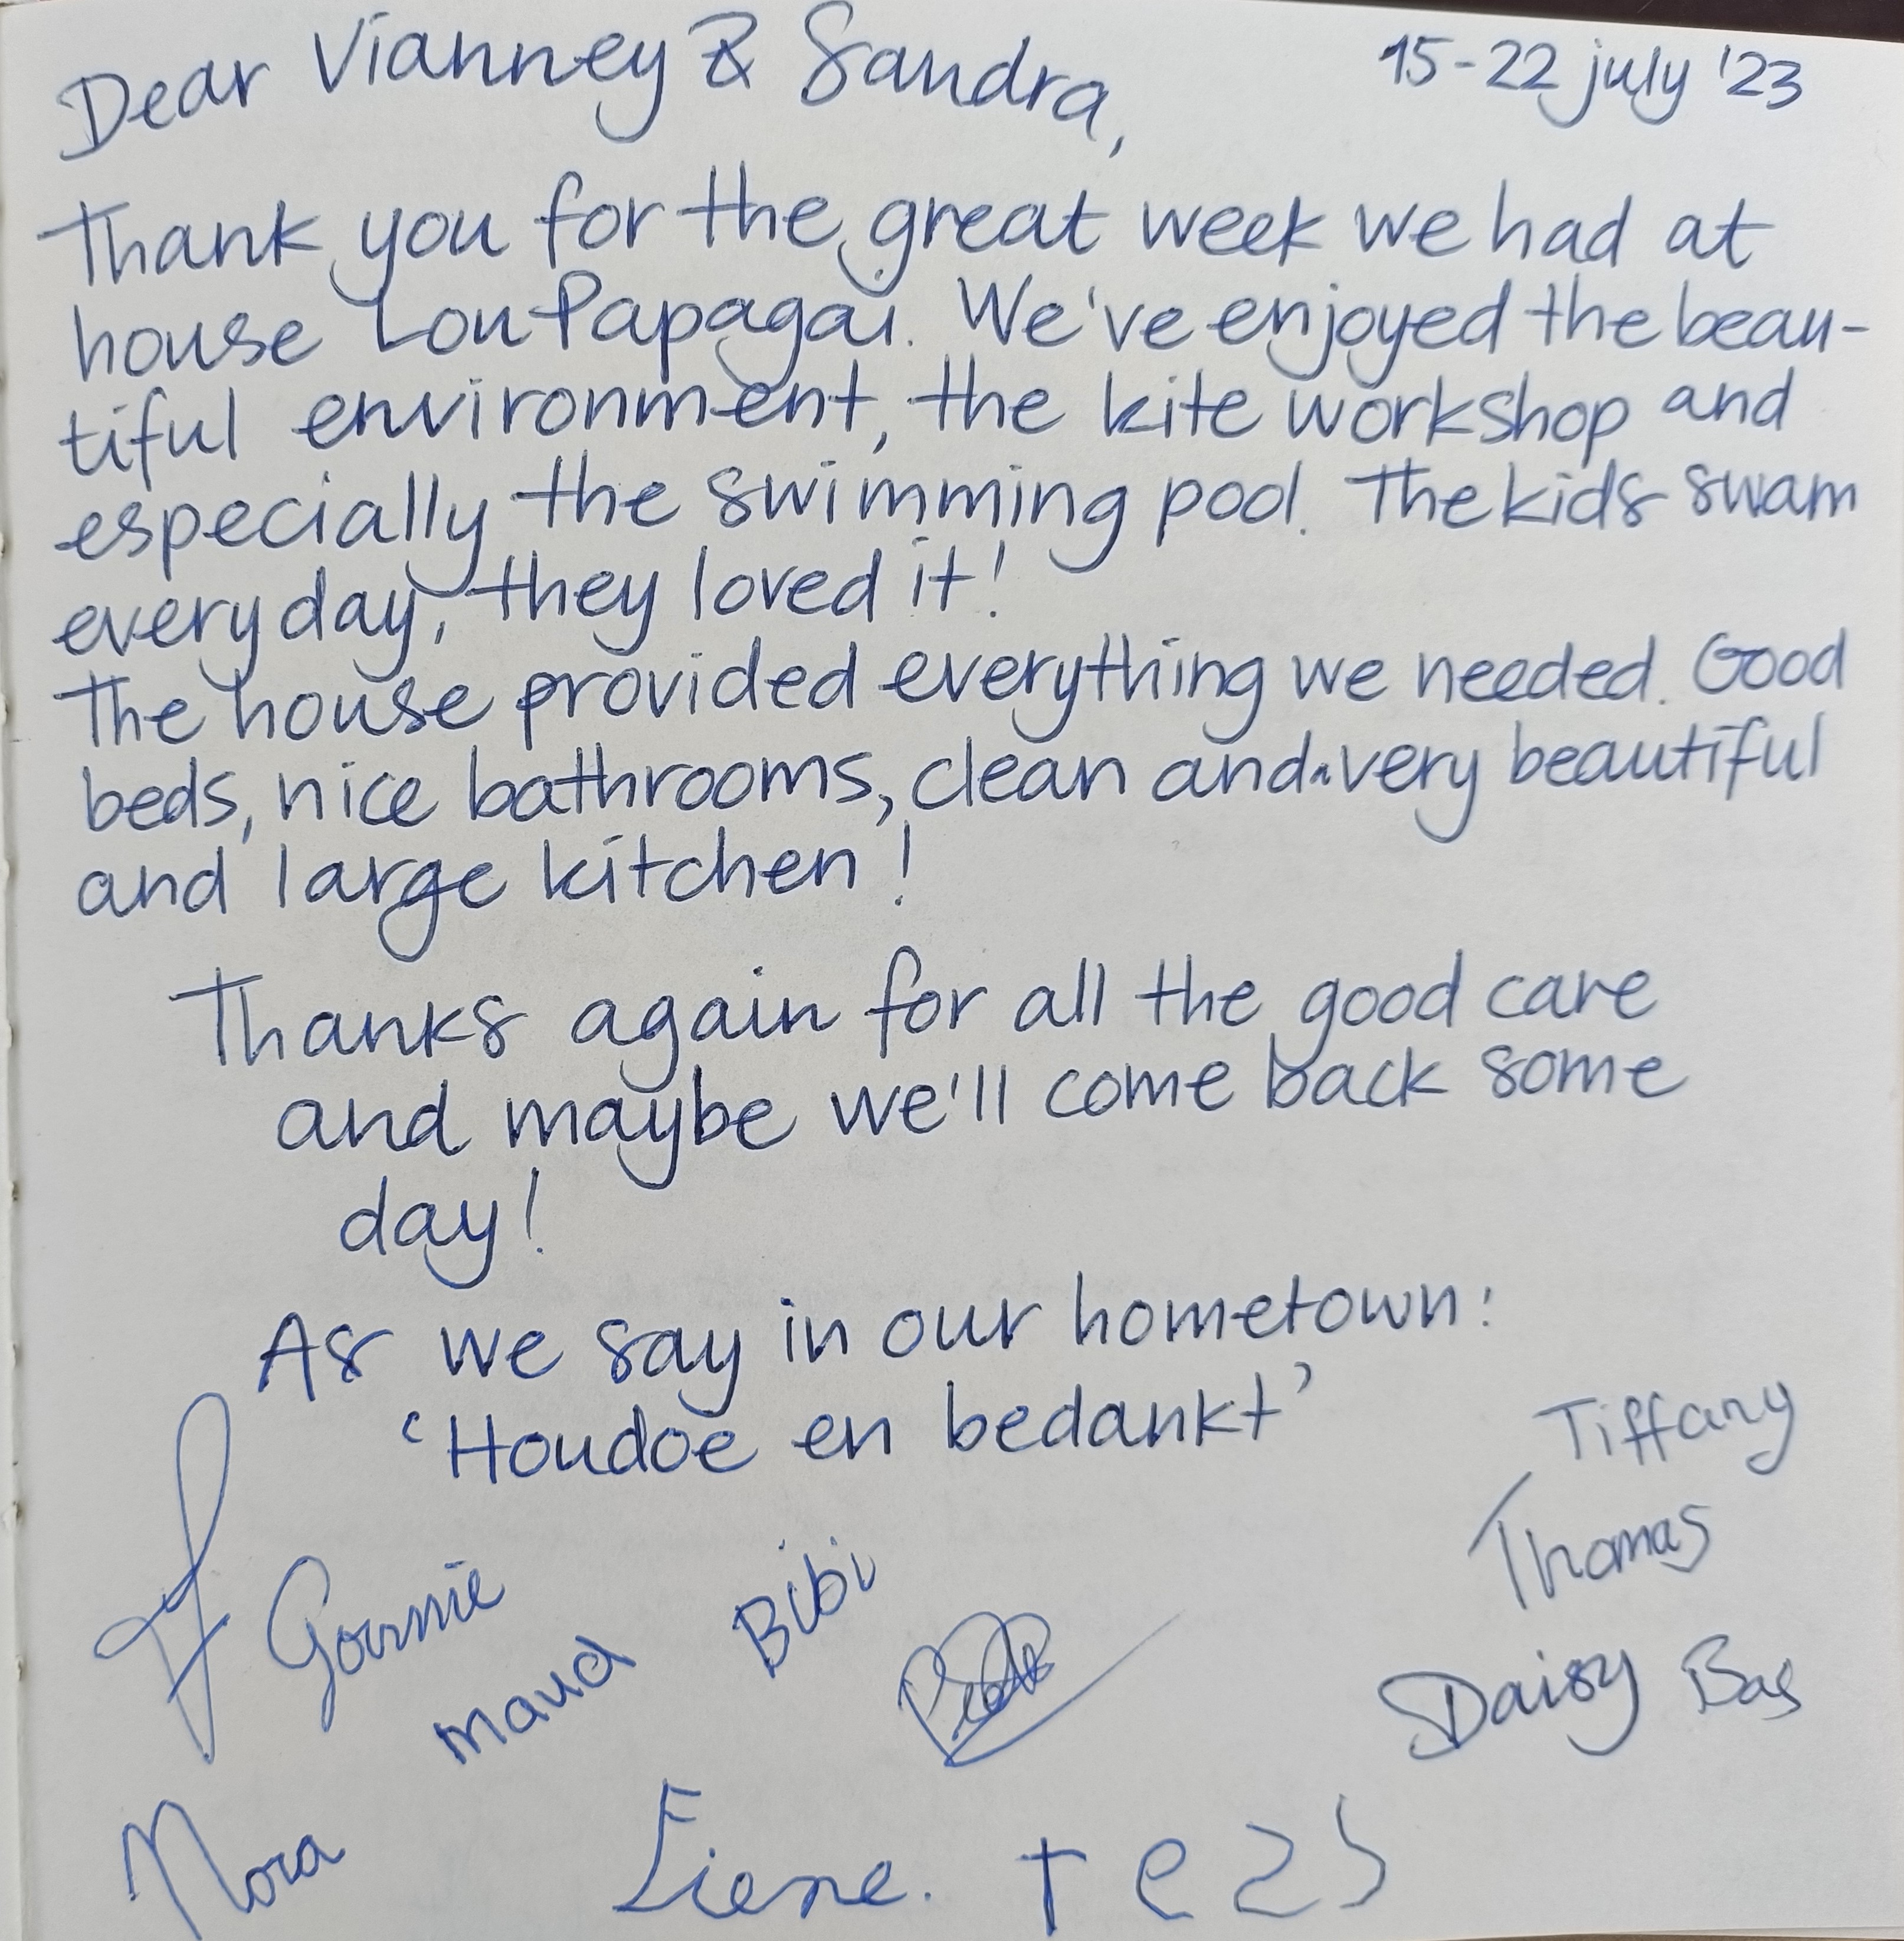 Dear Vianney & Sandra,
15-22 july '23
Thank you for the great week we had at
house Lou Papagai. We've enjoyed the beau-
tiful environment, the kite workshop and
especially the swimming pool. The kids swam
every day, they loved it!
The house provided everything we needed. Good
beds, nice bathrooms, clean and very beautiful
and large kitchen!
Thanks again for all the good care
and maybe we'll come back some
day!
As we say in our hometown:
'Houdoe en bedankt'
Tiffany
Thomas
Bibi
Maud
Daisy Bas
Nora